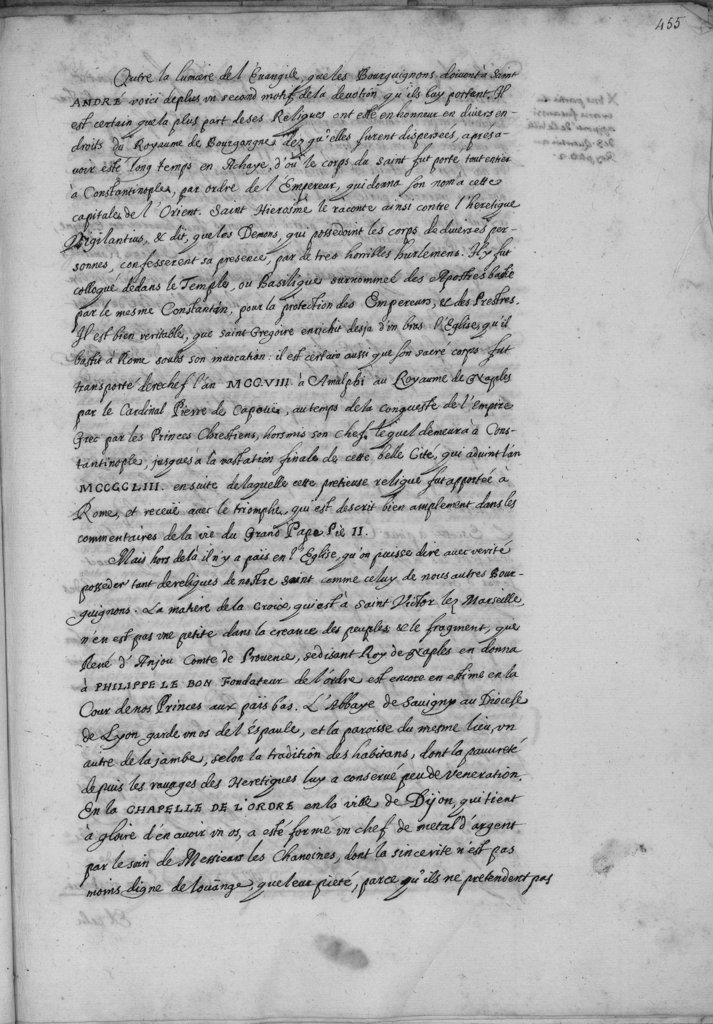 455
Outre la lumiere de l'Euangile, que les Bourguignons doiuent à Saint
ANDRÉ voici de plus vn second motif de la deuotion qu'ils luy portent. Il
est certain que la plus part de ses Reliques ont esté en honneur en diuers en-
droits du Royaume de Bourgongne dez qu'elles furent dispersées, apres a-
uoir esté long temps en Achaye, d'où le corps du saint fut porté tout entier
à Constantinople, par ordre de l'Empereur, qui donna son nom à cette
capitale de l'Orient. Saint Hierosme le raconte ainsi contre l'heretique
Vigilantius, & dit, que les Demons, qui possedoint les corps de diuerses per-
sonnes, confesserent sa presence, par de tres horribles hurlemens. Il y fut
colloqué dedans le Temple, ou Basilique surnommée des Apostres bastie
par le mesme Constantin, pour la protection des Empereurs, & des Prestres.
Il est bien veritable, que Saint Gregoire enrichit desja d'vn bras l'Eglise, qu'il
bastit à Rome soubs son inuocation: il est certain aussi que son sacré corps fut
transporté derechef l'an MCCVIII. à Amalphi au Royaume de Naples
par le Cardinal Pierre de Capoüe, au temps de la conqueste de l'Empire
Grec par les Princes Chrestiens, horsmis son chef, lequel demeura à Cons-
tantinople, jusques à la vastation finale de cette belle Cité, qui aduint l'an
MCCCCLIII. en suite de laquelle cette pretieuse relique fut apportée à
Rome, et receüe auec le triomphe, qui est descrit bien amplement dans les
commentaires de la vie du Grand Pape Pie II.
Mais hors de là il n'y a païs en l'Eglise, qu'on puisse dire auec verité
posseder tant de reliques de nostre saint comme celuy de nous autres Bour-
guignons. La matiere de la Croix, qui est à Saint Victor lez Marseille,
n'en est pas vne petite dans la creance des peuples & le fragment, que
René d'Anjou Comte de Prouence, se disant Roy de Naples en donna
à PHILIPPE LE BON Fondateur de l'ordre est encore en estime en la
Cour de nos Princes aux païs bas. L'Abbaye de Sauigny au Diocese
de Lyon garde vn os de l'Espaule, et la paroisse du mesme lieu, vn
autre de la jambe, selon la tradition des habitans, dont la pauureté
depuis les rauages des Heretiques luy a conserué peu de veneration.
En la CHAPELLE DE L'ORDRE en la ville de Dijon, qui tient
à gloire d'en auoir vn os, a esté formé vn chef de metal d'argent
par le soin de Messieurs les Chanoines, dont la sincerité n'est pas
moins digne de loüange, que leur pieté, parce qu'ils ne pretendent pas